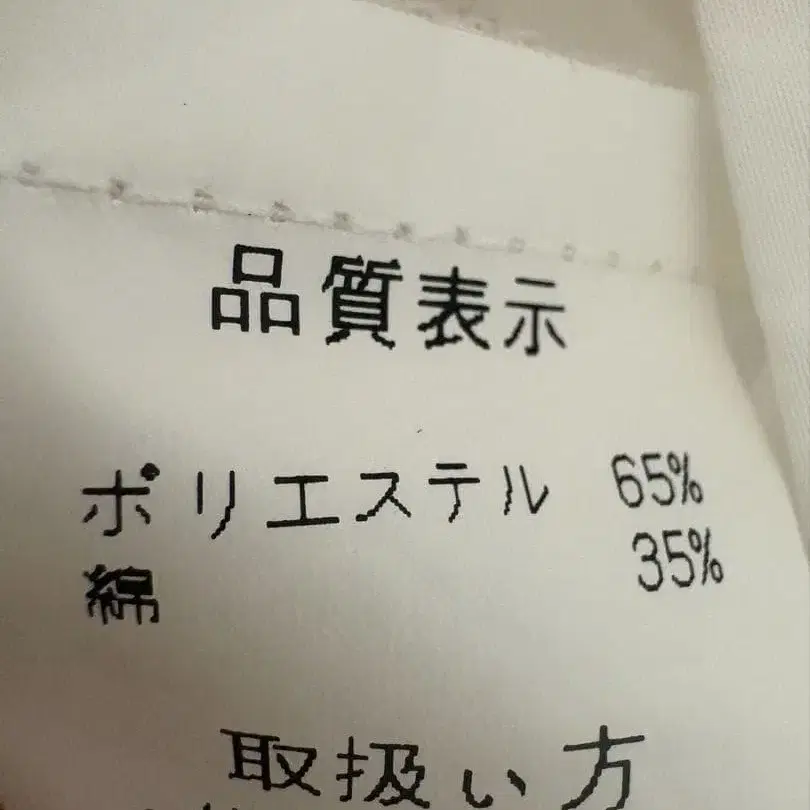 品質表示
ポリエステル 65%
綿 35%
取扱い方